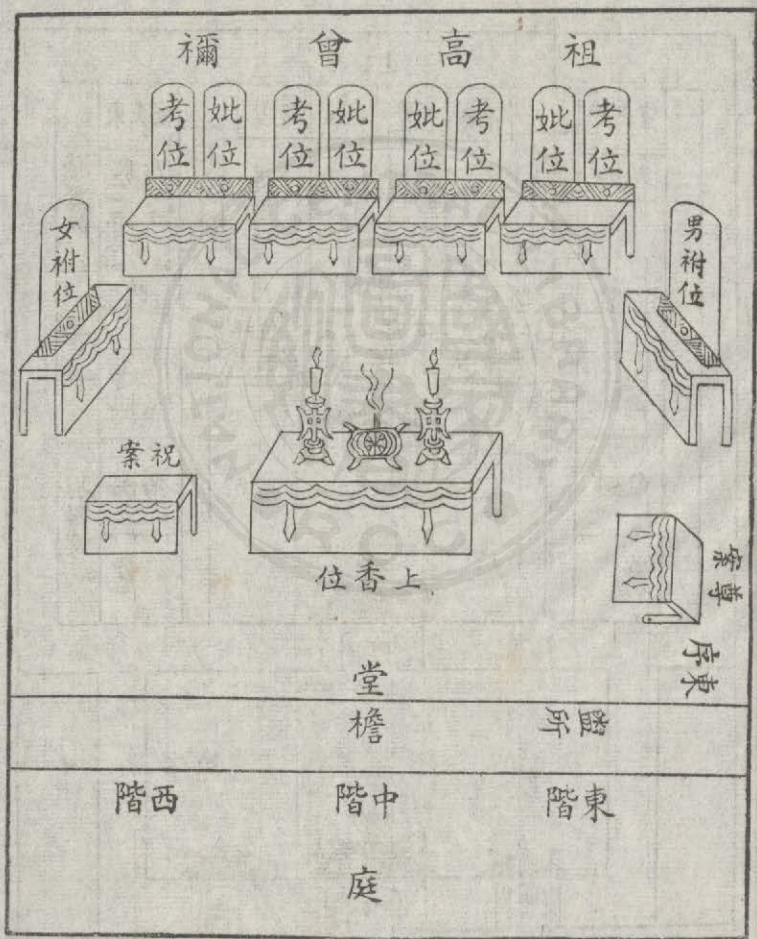 祖高曾禰
考位
妣位
考位
妣位
妣位
考位
妣位
考位
男祔位
女祔位
祝案
上香位
尊案
東序
堂
盥所
檐
東階
中階
西階
庭